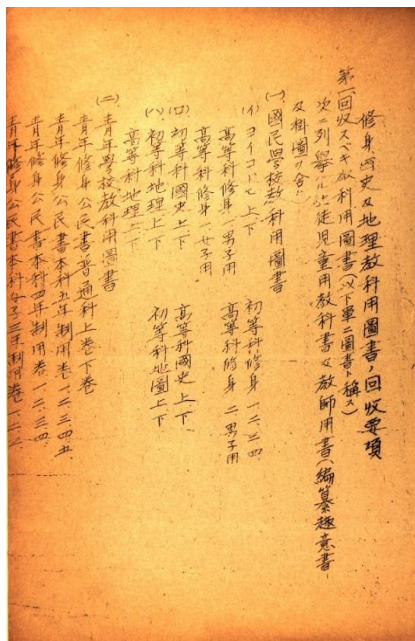 修身国史及地理教科用圖書ノ回收要項
第一回收スベキ教科用圖書(以下單ニ圖書ト稱ス)
次ニ列擧ル生徒児童用教科書及教師用書(編纂趣意書
及掛圖ヲ含ム
(一)國民学校教科用圖書
(イ)ヨイコドモ上下 初等科修身一、二、三、四
高等科修身一男子用 高等科修身二男子用
高等科修身一女子用
(ロ)初等科國史上下 高等科國史上、下
(ハ)初等科地理上下 初等科地圖上、下
高等科地理上下
(二)青年學校教科用圖書
青年修身公民書普通科上巻下巻
青年修身公民書本科五年制用巻一、二、三、四、五
青年修身公民書本科四年制用巻一、二、三、四
青年修身公民書本科女子三年制用巻一、二、